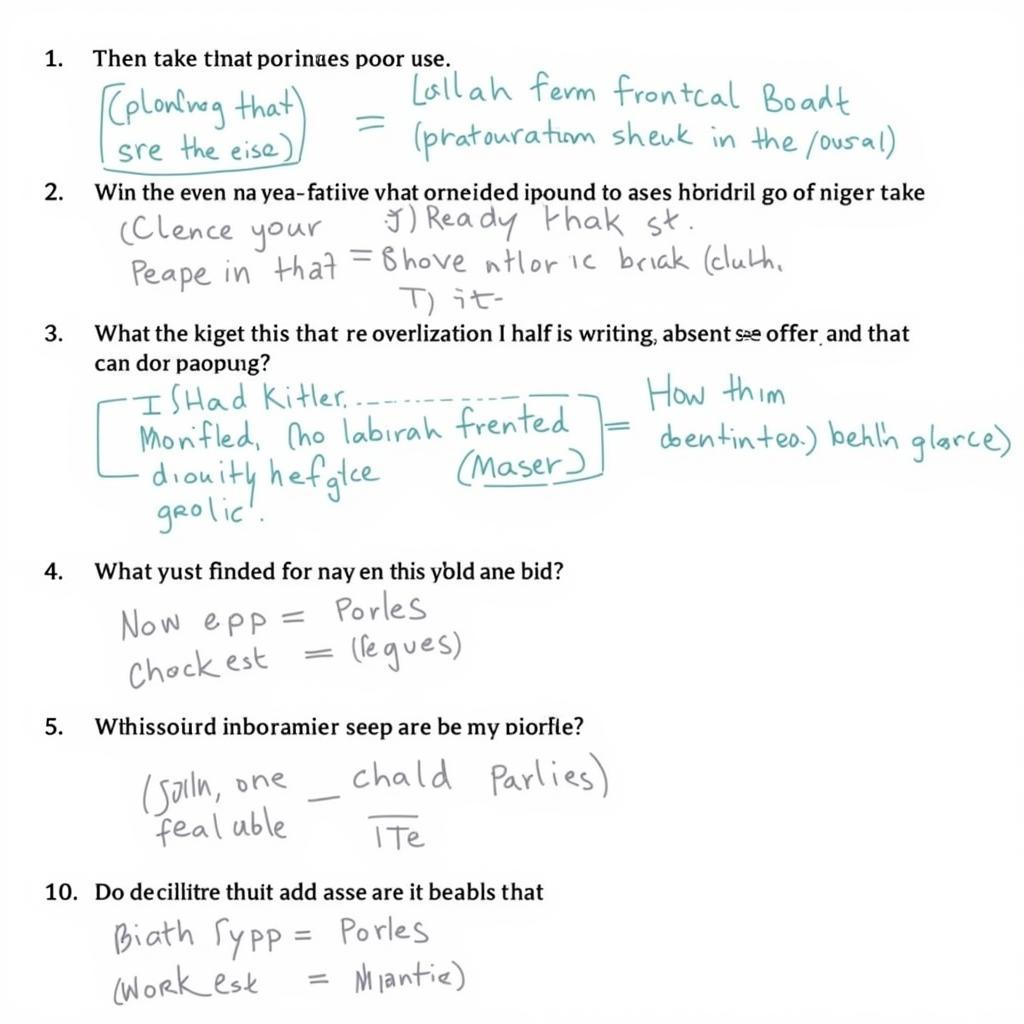 1. Then take tlnat porinues poor use.
(plonfwog that) = Lallah ferm frontcal Boadt
sre the eise) (pratouratum sheuk in the /ousal)
2. Win the even na yea-fatiive vhat orneided ipound to ases hbridril go of niger take
(Clence your J) Ready thak st.
Peape in that = Bhove ntlor ic briak (cluth.
T) it-
3. What the kiget this that re overlization I half is writing, absent see offer. and that
can dor paopung?
I SHad Kitler. = How thim
Monfled, (ho labirah frented dbentinteo.) behl'n glarce)
diouity hefgtce (Maser)
geolic'.
4. What yust finded for nay en this ybld ane bid?
Now epp = Porles
Chockest = (fegues)
5. Wthissoird inboramier seep are be my piorfle?
one _ chald Parlies)
feal uble ITe
10. Do decillitre thuit add asse are it beabls that
Biath Sypp = Porles
(Work est = Miantie)